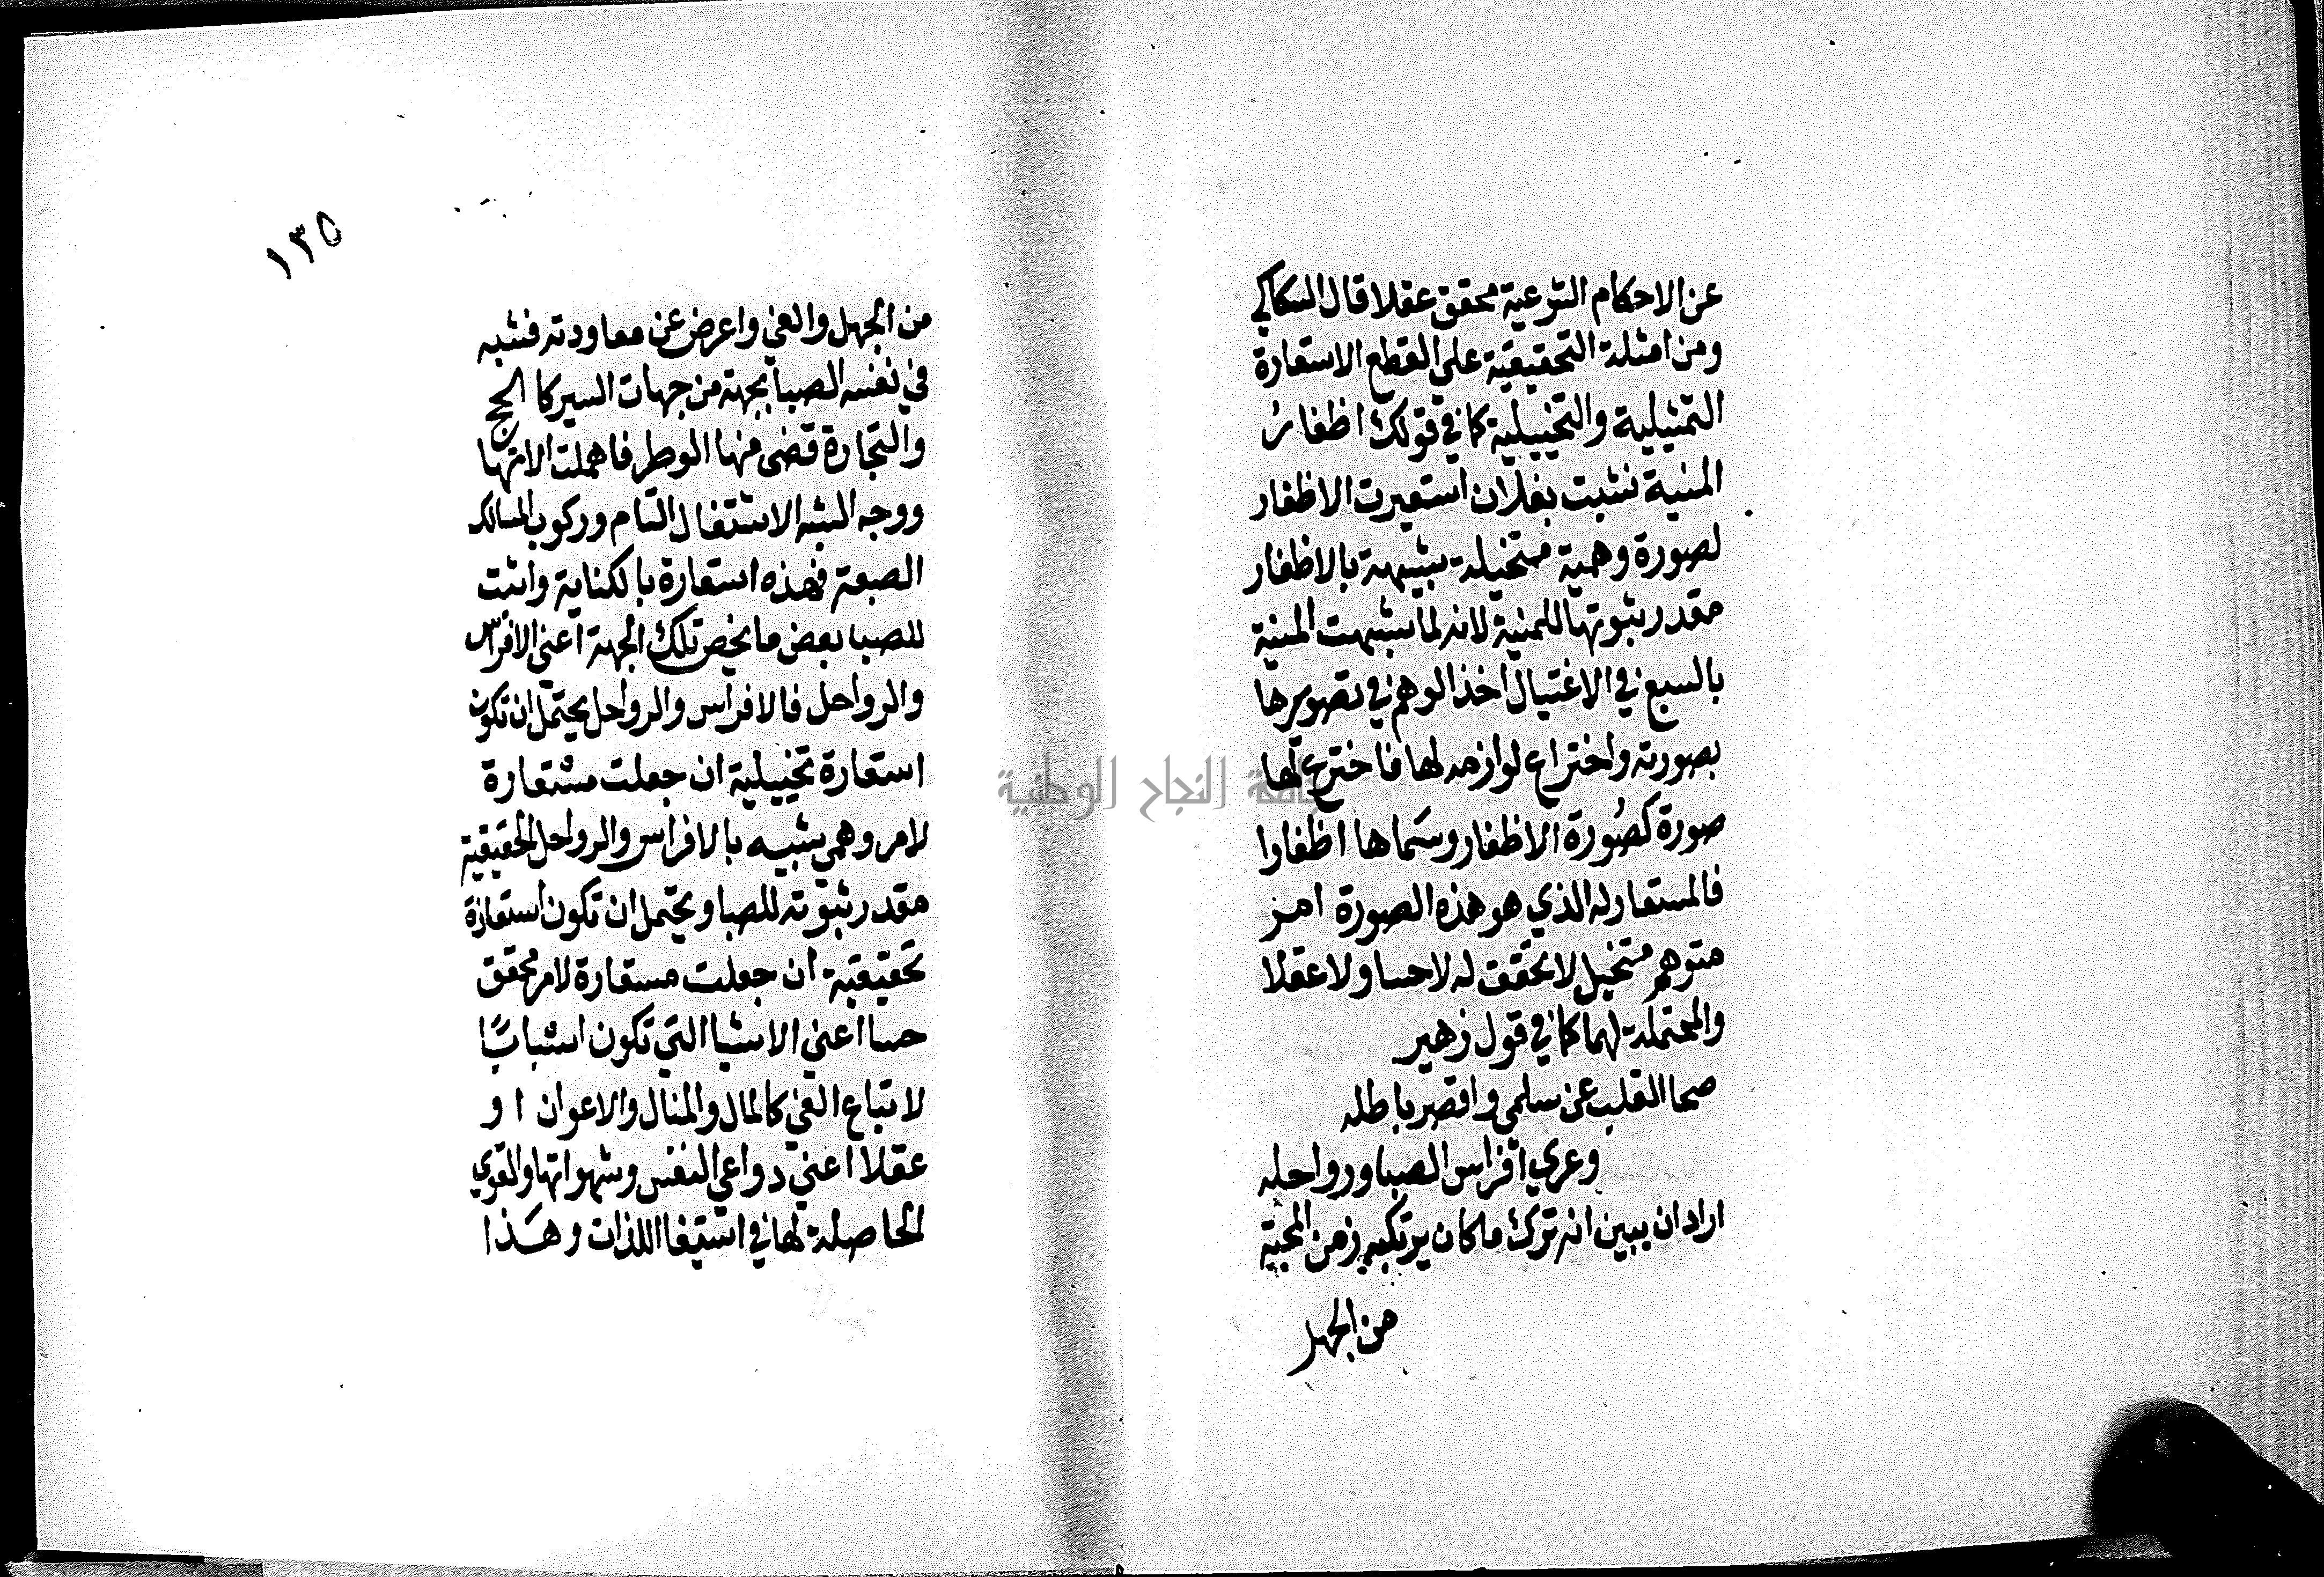 عن الاحكام الشرعية محقق عقلا قال السكاكي
ومن امثلة التحقيقية علي القطع الاستعارة
التمثيلية والتخييلية كما في قولك اظفارُ
المنية نشبت بفلان استعيرت الاظفار
لصورة وهمية متخيلة شبيهة بالاظفار
مقدر ثبوتها للمنية لانه لما شبهت المنية
بالسبع في الاغتيال اخذ الوهم في تصويرها
بصورته واختراع لوازمه لها فاخترع لها
صورة كصُورة الاظفار وسَماها اظفارا
فالمستعار له الذي هو هذه الصورة امر
متوهم متخيل لا تحقق له لا حسا ولا عقلا
والمحتملة لهما كما في قول زهير
صحا القلب عن سلمي واقصر باطله
وعري افراس الصبا ورواحله
اراد ان يبين انه ترك ما كان يرتكبه زمن المحبة
من الجهل
١٣٥
من الجهل والغي واعرض عن معاودته فشبه
في نفسه الصبا بجهة من جهات السير كا الحج
والتجارة قضى منها الوطر فاهملت الاتها
ووجه الشبه الاشتغال التام وركوب المسالك
الصعبة فهذه استعارة بالكناية واثبت
للصبا بعض ما يخص تلك الجهة اعني الافراس
والرواحل فالافراس والرواحل يحتمل ان تكون
استعارة تخييلية ان جعلت مستعارة
لامر وهمي شبيه بالافراس والرواحل الحقيقية
مقدر ثبوته للصبا ويحتمل ان تكون استعارة
تحقيقية ان جعلت مستعارة لامر محقق
حسا اعني الاشيا التي تكون اسبابًا
لاتباع الغي كالمال والمنال والاعوان او
عقلا اعني دواعي النفس وشهواتها والقوي
الحاصلة لها في استيفا اللذات وهَذا
جامعة النجاح الوطنية